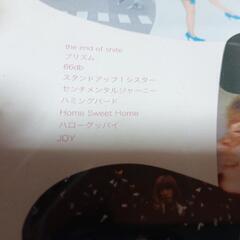 the end of shite
プリズム
66db
スタンドアップ!シスター
センチメンタルジャーニー
ハミングバード
Home Sweet Home
ハローグッバイ
JOY